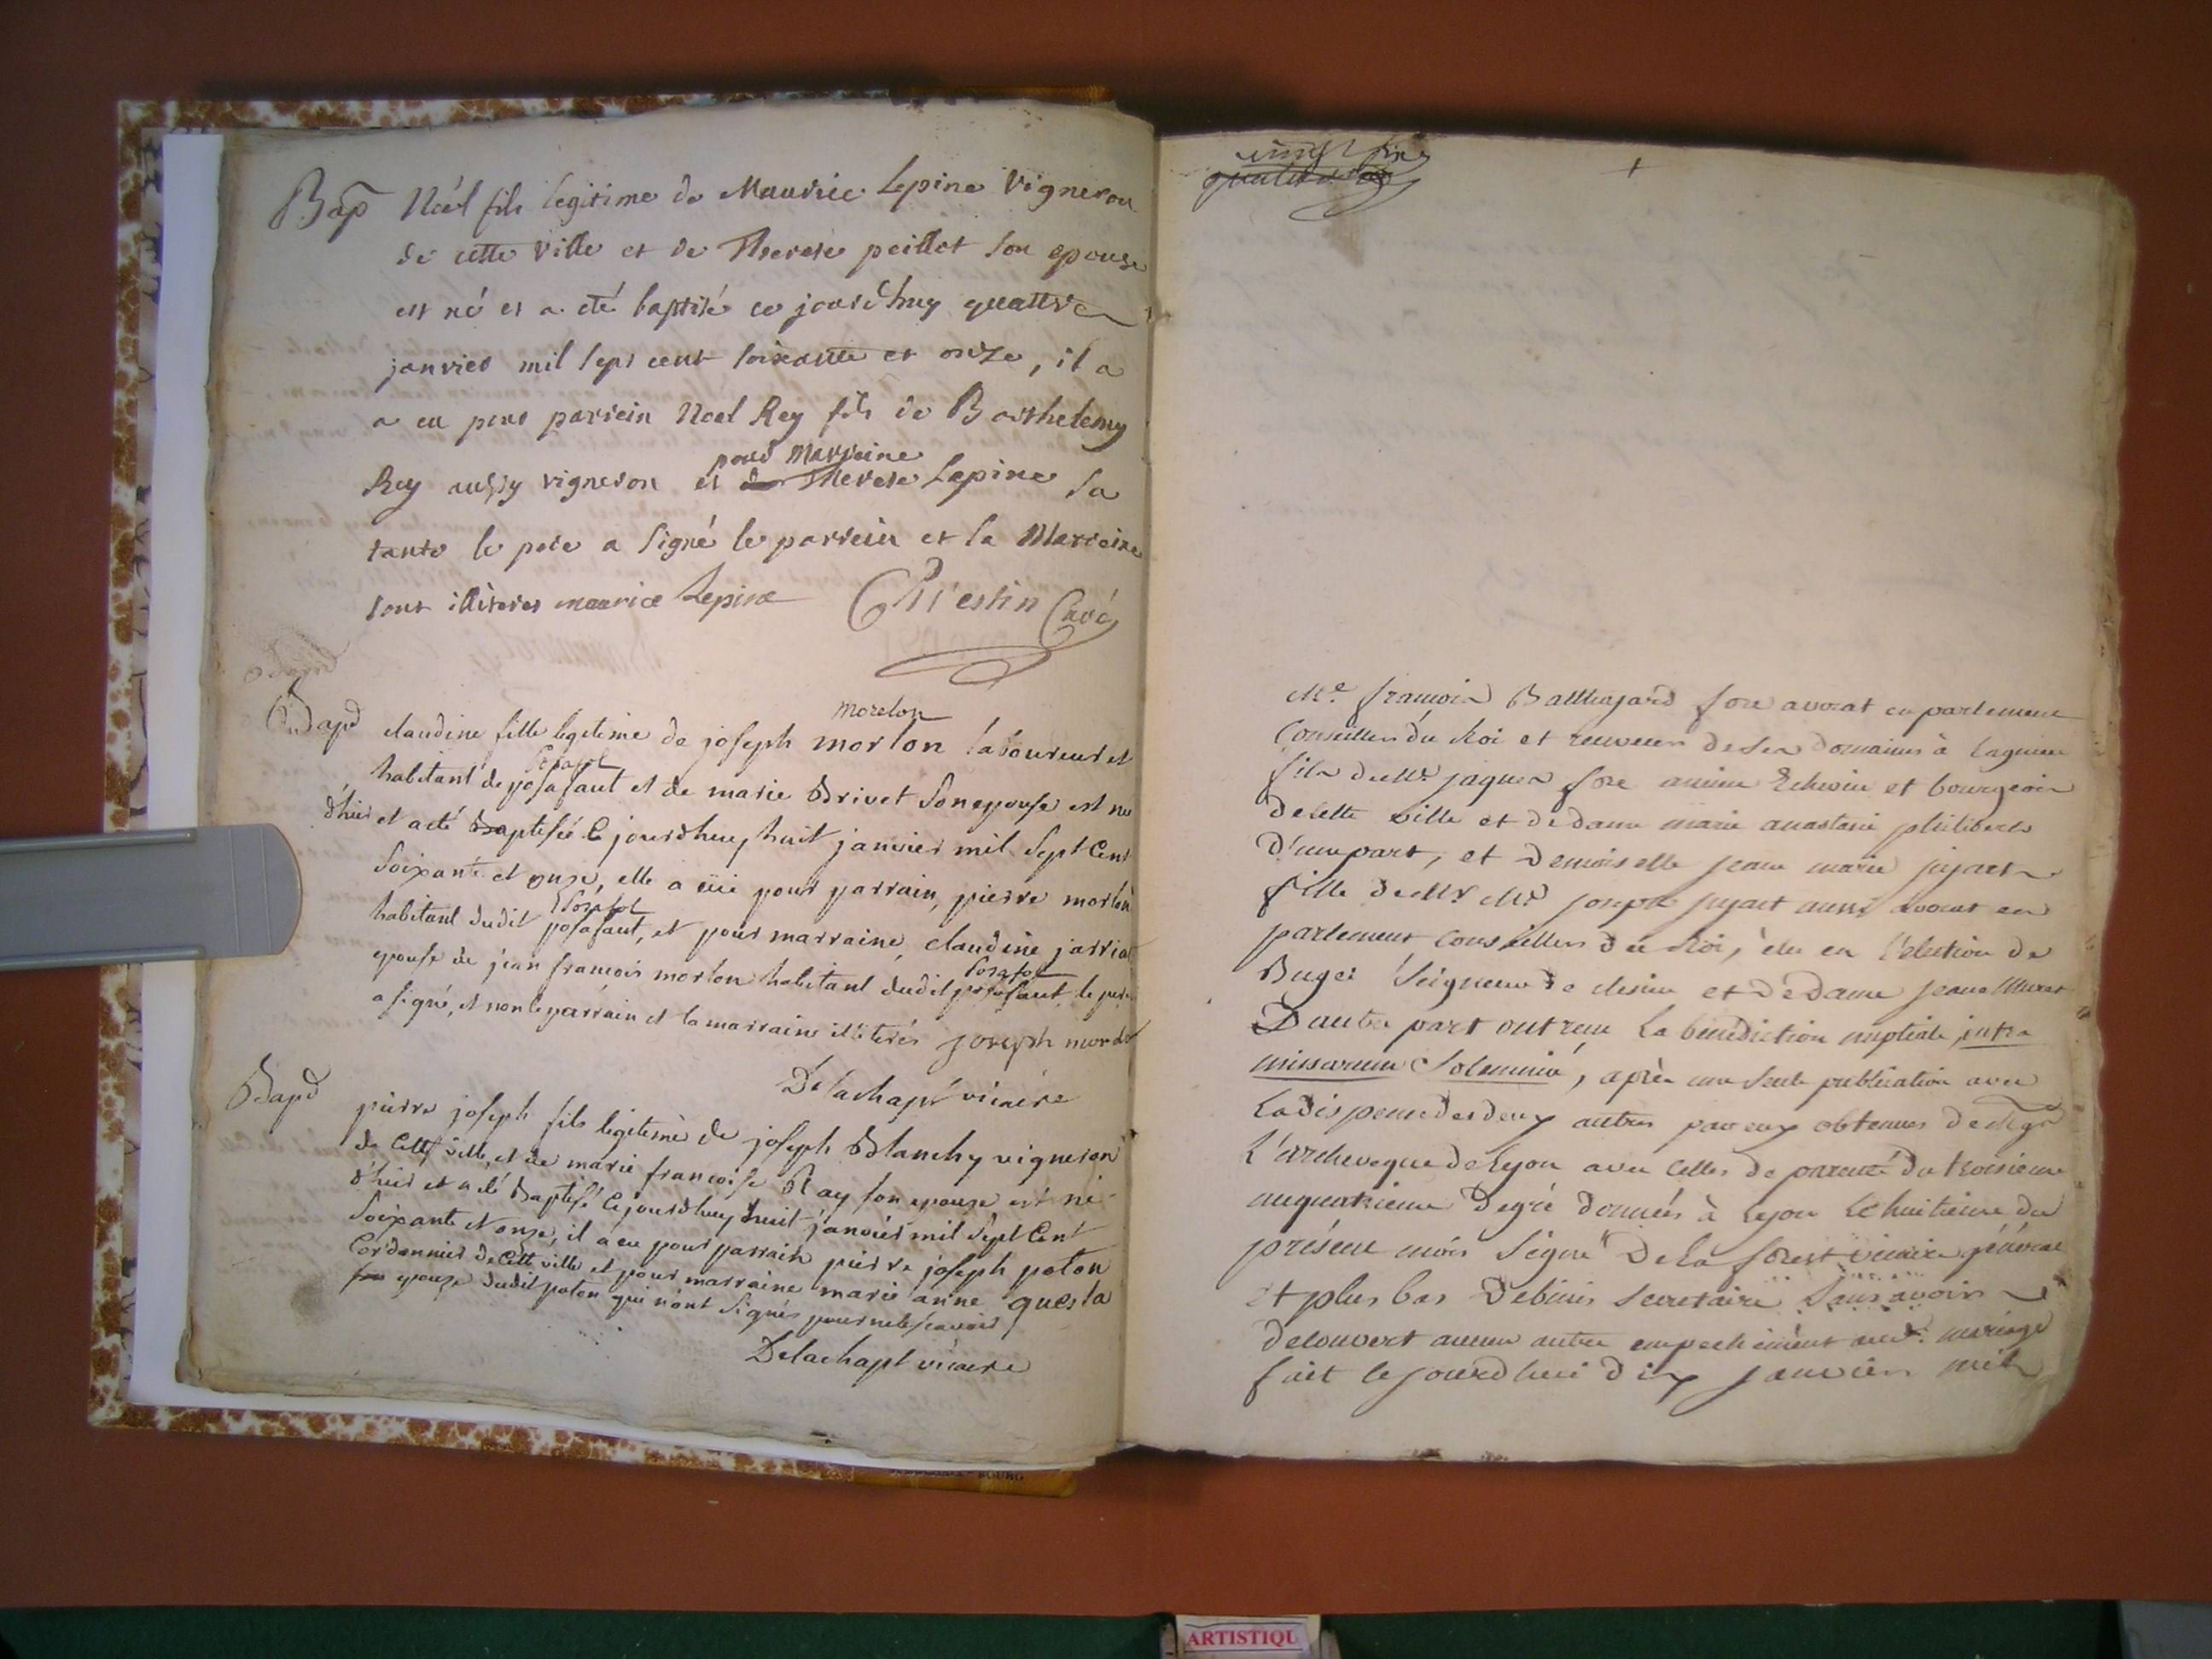 Bap Noël fils legitime de Maurice Lepine Vigneron
de cette Ville et de Therese peillot son epouse
est né et a eté baptisé ce jourd'huy quattre
janvier mil sept cent soixante et onze, il a
a eu pour parrein Noel Rey fils de Barthelemy
pour Marreine
Rey aussy vigneron et de Therese Lepine sa
tante le pere a signé le parrein et la Marreine
sont illiteres maurice Lepine Curé
Bapt
morelon
claudine fille legitime de joseph morlon laboureur et
Posafol
habitant de posafaut et de marie Brivet son epouse est née
d'hier et a eté Baptisée ce jourdhuy huit janvier mil sept Cent
soixante et onze, elle a eüe pour parrain, pierre morlon
Posafol
habitant dudit posafaut, et pour marraine, claudine jarriat
Posafol
epouse de jean francois morlon habitant dudit posafaut le pere
a signé, et non le parrain et la marraine illiterés joseph
Delachapt vicaire
Bapt
pierre joseph fils legitime de joseph Blanchy vigneron
de Cette ville et de marie francoise Ray son epouze est né
d'hier et a eté Baptisé Cejourdhuy huit janvier mil sept Cent
soixante et onze, il a eu pour parrain pierre joseph poton
Cordonnier de Cette ville et pour marraine marie anne questa
epouze dudit poton qui n'ont signés pour ne le scavoir
Delachapt vicaire
vingt six
Me. francois Balthazard fore avocat en parlement
Conseiller du Roi et receveur de ses domaines à Lagnieu
fils de Mr. jaques fore ancien Echevin et bourgeois
de cette ville et de dame marie anastasie philibert
D'une part, et Demoiselle jeane marie jujact
fille de Mr Me joseph jujact aussi avocat en
parlement conseiller du Roi, élu en l'election de
Bugei Seigneur de et de Dame jeane Muret
D'autre part ont reçu La bénédiction nuptiale intra
missarum Solemnia, après une seule publication avec
La dispense des deux autres par eux obtenues de Mgr
L'archeveque de Lyon avec celles de parenté du troisieme
au quatrieme Degré données à Lyon Le huitieme du
présent mois Signé De La forest vicaire général
et plus bas secretaire Sans avoir
découvert aucun autre empechement aud. mariage
fait cejourdhui dix janvier mil
ARTISTIQU